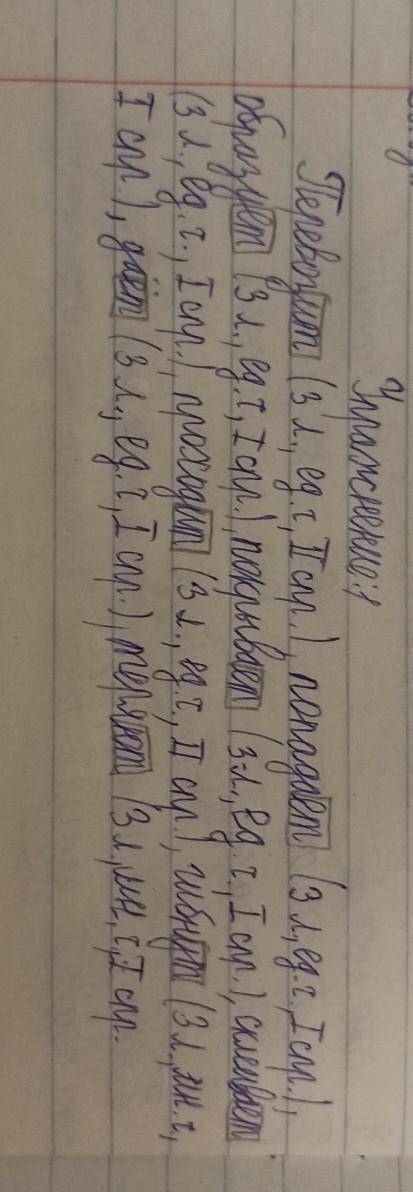 Упражнение:1
Перевозит (3 л., ед. ч, II спр.), попадает (3 л, ед. ч., I спр.),
образует (3 л., ед. ч, I спр.), покрывает (3-л., ед. ч., I спр.), склеивает
(3 л., ед. ч., I спр.), проходит (3 л., ед. ч., II спр.), гибнут (3 л., мн. ч,
I спр.), даёт (3 л., ед. ч, I спр.), теряют (3 л., мн, ч., I спр.